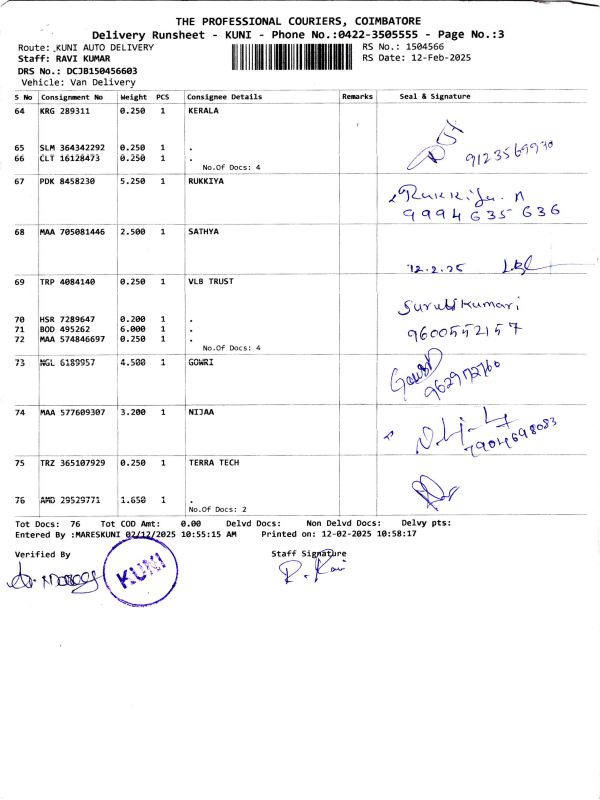 THE PROFESSIONAL COURIERS, COIMBATORE
Delivery Runsheet - KUNI - Phone No.:0422-3505555 - Page No.:3
Route: KUNI AUTO DELIVERY RS No.: 1504566
Staff: RAVI KUMAR RS Date: 12-Feb-2025
DRS No.: DCJB150456603
Vehicle: Van Delivery
S No Consignment No Weight PCS Consignee Details Remarks Seal & Signature
64 KRG 289311 0.250 1 KERALA
65 SLM 364342292 0.250 1 .
66 CLT 16128473 0.250 1 .
9123569930
No.Of Docs: 4
67 PDK 8458230 5.250 1 RUKKIYA
Rukkiya. N
9994635636
68 MAA 705081446 2.500 1 SATHYA
12.2.25
69 TRP 4084140 0.250 1 VLB TRUST
Surubikumari
70 HSR 7289647 0.200 1 .
71 BOD 495262 6.000 1 .
9600552157
72 MAA 574846697 0.250 1 .
No.Of Docs: 4
73 NGL 6189957 4.500 1 GOWRI
9629772760
74 MAA 577609307 3.200 1 NIJAA
7904698083
75 TRZ 365107929 0.250 1 TERRA TECH
76 AMD 29529771 1.650 1 .
No.Of Docs: 2
Tot Docs: 76 Tot COD Amt: 0.00 Delvd Docs: Non Delvd Docs: Delvy pts:
Entered By :MARESKUNI 02/12/2025 10:55:15 AM Printed on: 12-02-2025 10:58:17
Verified By Staff Signature
KUNI
R. Ravi